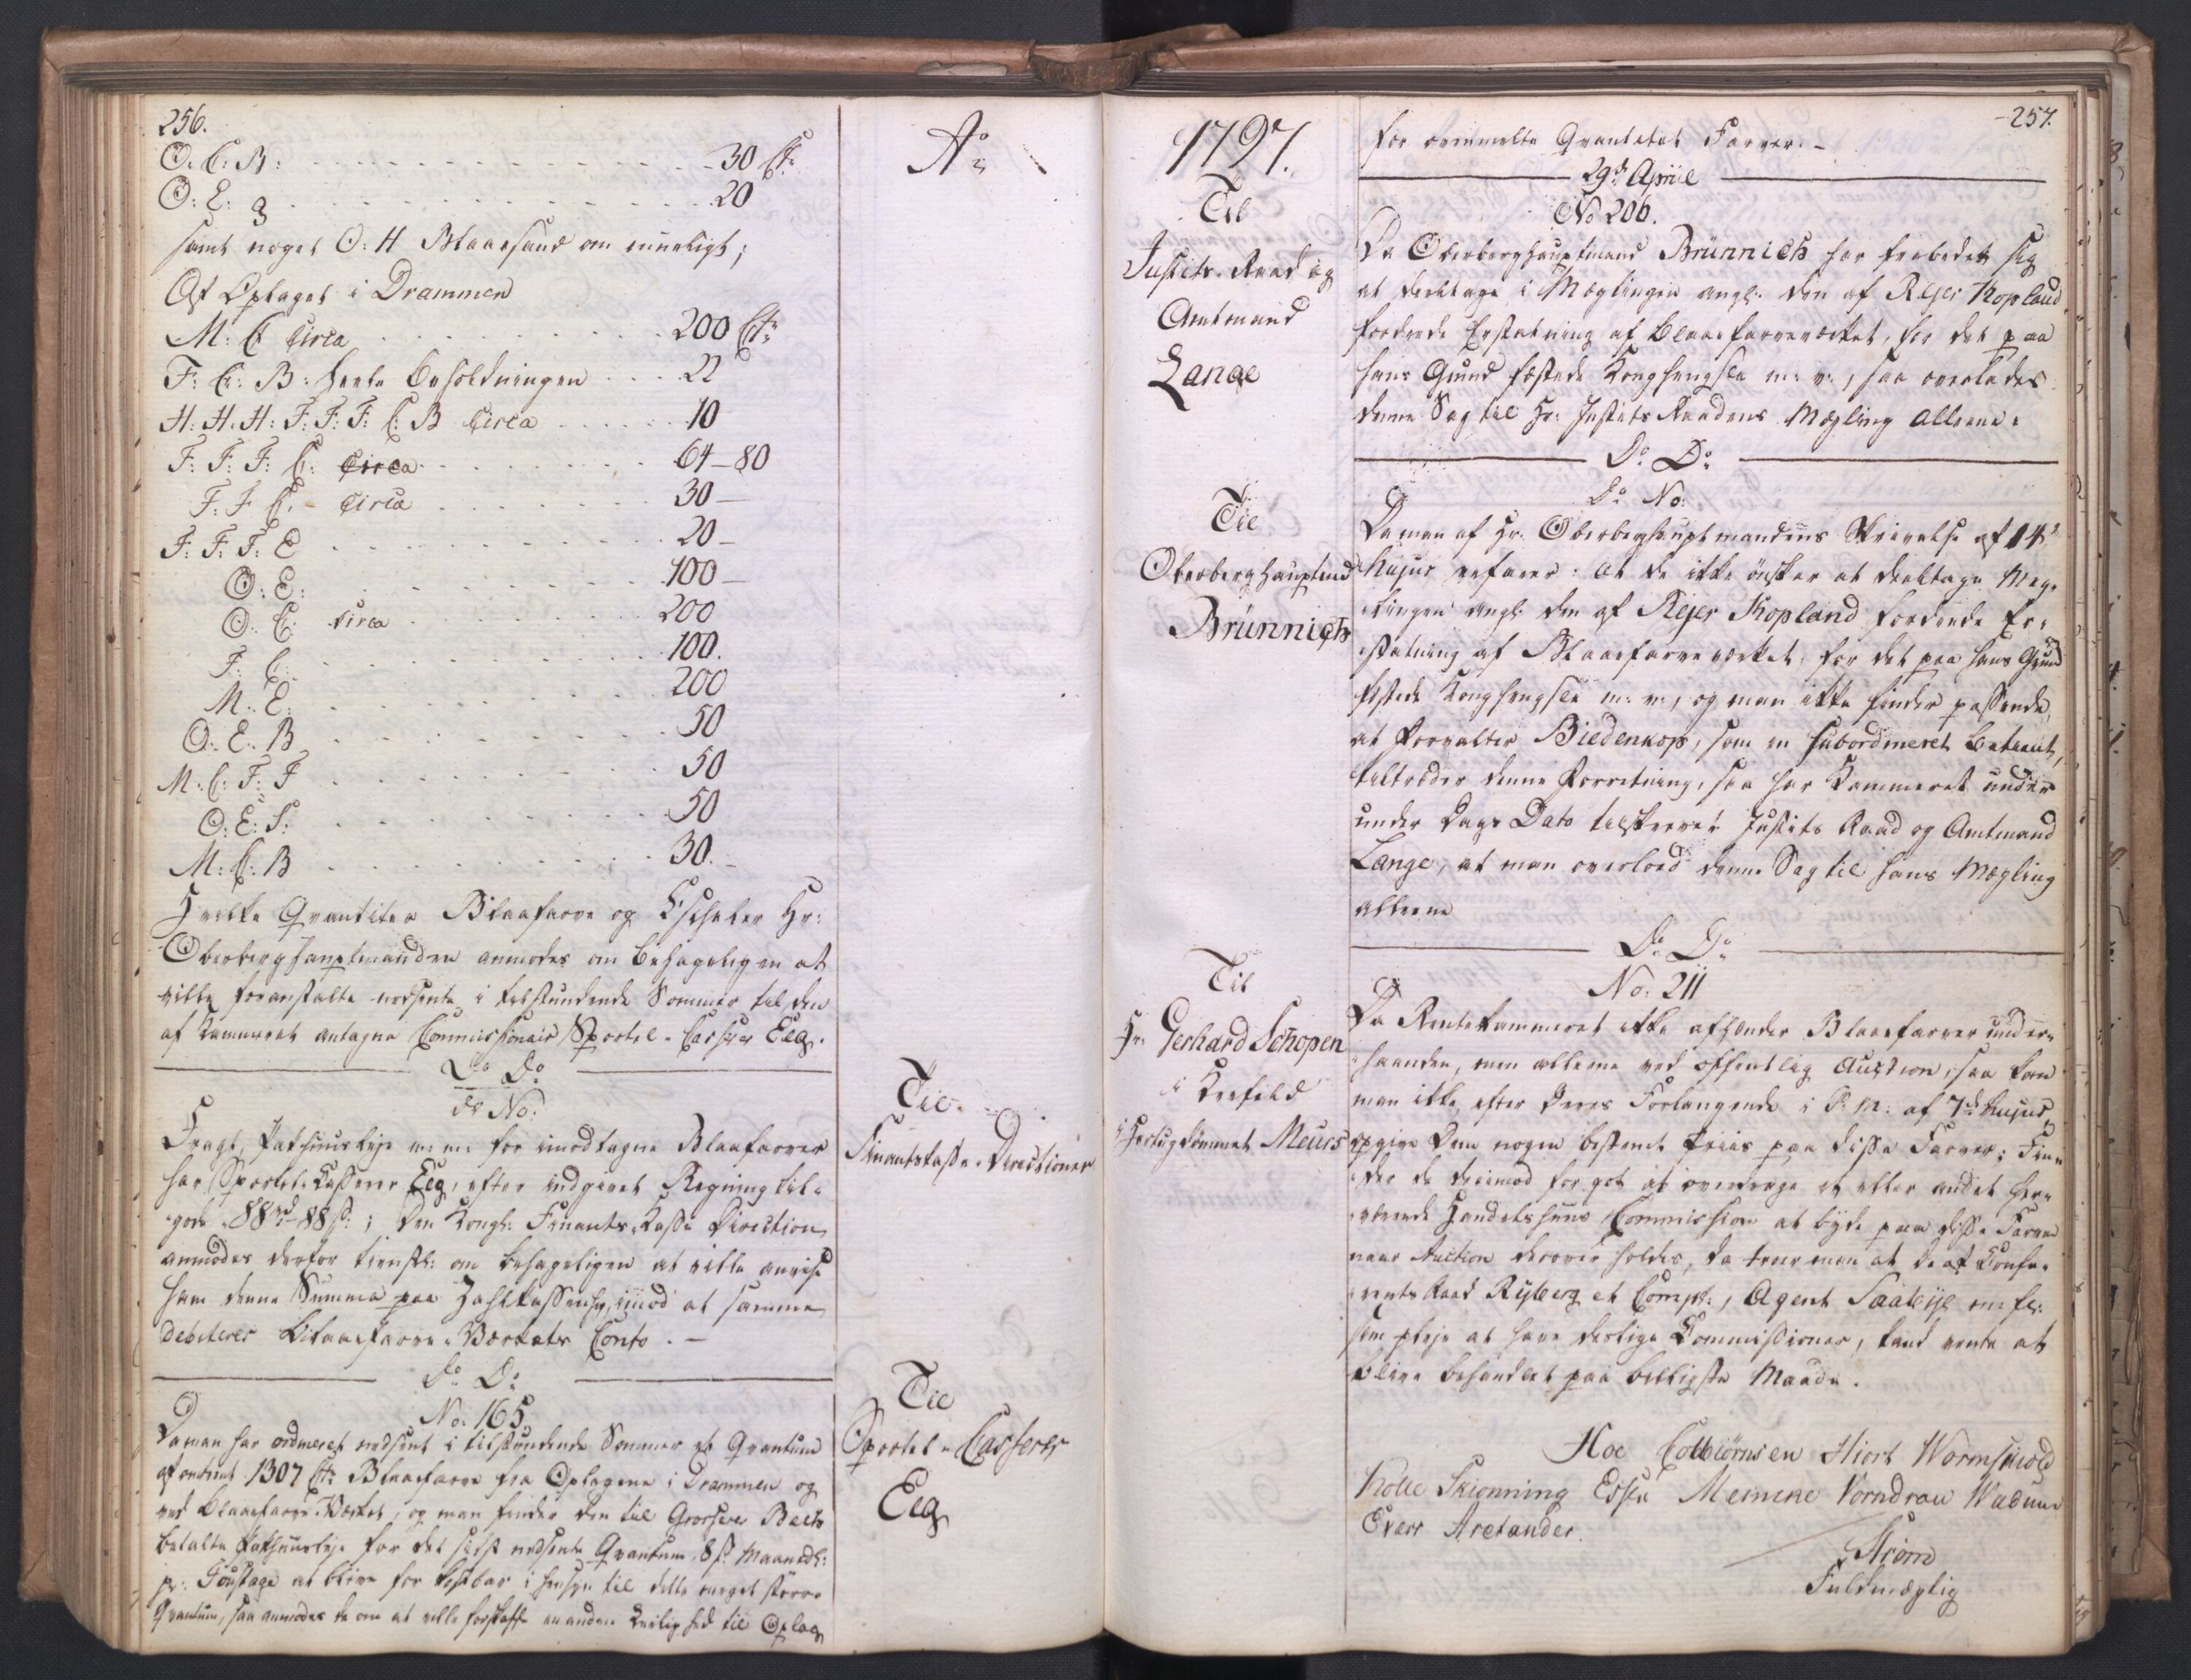 256.
O: C: B: 30 Ctr
O: E: g 20
samt noget O: H Blaaesand om mueligt;
Af Oplaget i Drammen
M: C circa 200 Ctr
F: C: B: heele Beholdningen 22
H: H: H: F: F: F: C: B circa 10
F: F: F: C: circa 64-80
F: F C: - circa 30-
F: F: F: E 20-
O: E: 100-
O: C: circa 200
F: C: 100.
M: E: 200
O: E: B 50
M: C: F: F 50
O: E: S: 50
M: C: B 30.-
Hvilke Qvantiter Blaafarve og Escheler Hr:
Oberberghauptmanden anmodes om behageligen at
ville foranstalte nedsente i tilstundende Sommer til den
af Kammeret antagne Commissionair Sportel-Casserer Eeg.
Do Do
do No:
Fragt, Pakhuusleje m: m: for imodtagne Blaafarver
har Sportel-Casserer Eeg, efter indgivet Regning til-
gode 88 rd 88 s; Den Kongl: Finants-Kasse Direction
anmodes derfor tienstl: om behageligen at ville anvise
ham denne Summa paa Zahlkassen, imod at samme
debiteres Blaaefarve-Værkets Conto. -
do Do
No: 165.
Da man har ordineret nedsent i tilstundende Sommer et Qvantum
af omtrent 1307 Ctr Blaaefarve fra Oplagene i Drammen og
ved Blaaefarve-Værket, og man finder den til Grosserer Bech
betalte Pakhuusleje for det sidst nedsente Qvantum 8 s Maanedl:
pr: Foustage at blive for kostbar i Hensyn til dette meget større
Qvantum, saa anmodes de om at ville forskaffe en anden Leilighed til Oplag
Ao
Til
Finantskasse-Directionen
Til
Sportel-Casserer
Eeg
1797.
Til
Justits-Raad og
Amtmand
Lange
Til
Oberberghauptmd
Brünnich
Til
Hr: Gerhard Schopen
i Krefeld
i Hertugdømmet Meurs
257.
for ommelte Qvantitet Farver. -
29de April
No 206.
Da Oberberghauptmand Brünnich har frabedet sig
at deeltage i Mæglingen angl: den af Rejer Kopland
fordrede Erstatning af Blaaefarveværket, for det paa
hans Grund fæstede Konghengsle m: v:, saa overlades
denne Sag til Hr: Justits Raadens Mægling alleene.
Do Do
do No:
Da man af Hr: Oberberghauptmandens Skrivelse af 14d
hujus erfarer: at de ikke ønsker at deeltage Mæg-
lingen angl: den af Rejer Kopland fordrede Er-
statning af Blaaefarveværket, for det paa hans Grund
fæstede Konghengsle m: v:, og man ikke finder passende,
at Forvalter Biedenkop, som en subordineret Betient,
tiltræder denne Forretning, saa har Kammeret under
under Dags Dato tilskrevet Justits Raad og Amtmand
Lange, at man overlod denne Sag til hans Mægling
alleene
Do Do
No: 211
Da Rentekammeret ikke afhænder Blaaefarver under-
haanden, men alleene ved offentlig Auction, saa kan
man ikke, efter Deres Forlangende i P: M: af 7d hujus,
opgive Dem nogen bestemt Priis paa disse Farver; Fin-
der de derimod for got at overdrage et eller andet her-
værende Handelshuus Commission at byde paa disse Farver
naar Auction derover holdes, da troer man at de af Confe-
rentsRaad Ryberg et Comp:, Agent Saabye m: fl:
som pleje at have deslige Commissioner, kand vente at
blive behandlet paa billigste Maade.
Hoe Colbiörnsen Hiort Wormskiold
Kolle Skionning Essen Meincke Vorndran Wadum
Evers Arctander.
Strøm
Fuldmægtig